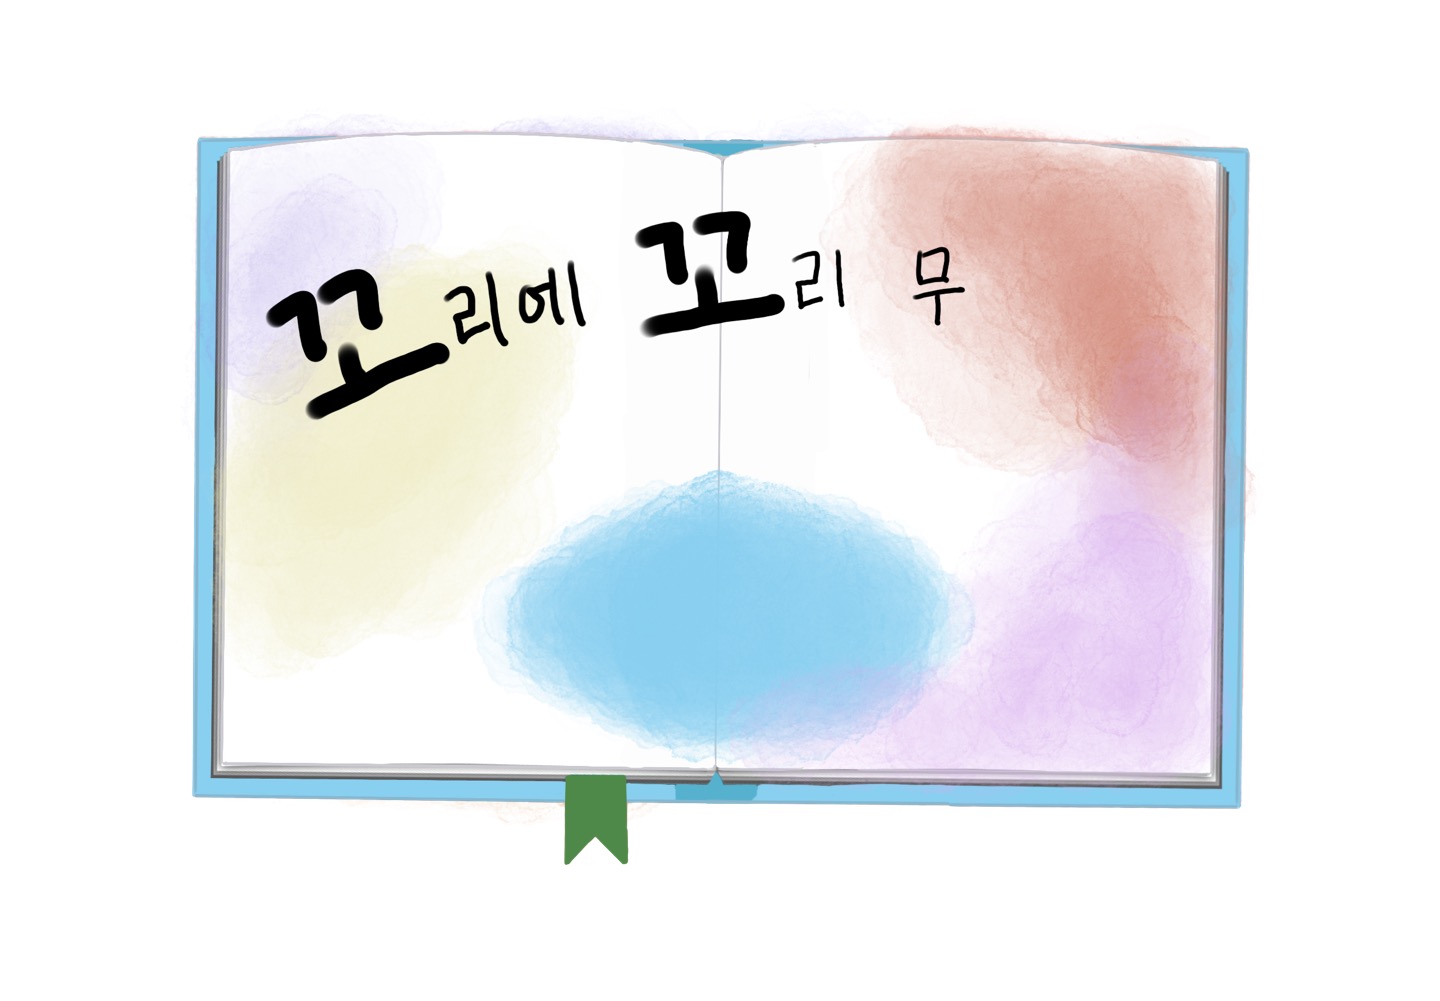 꼬리에 꼬리 무